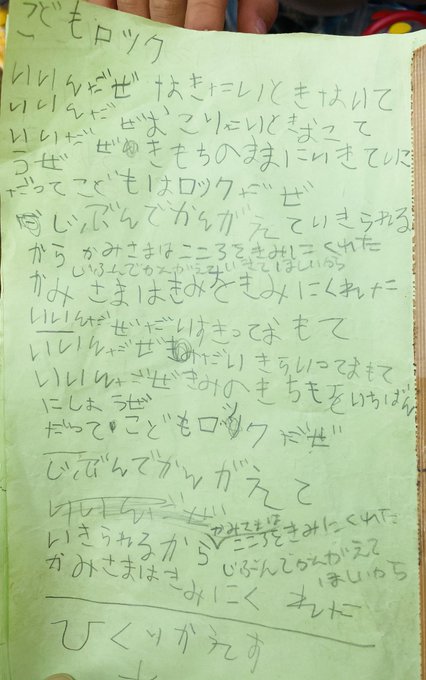 こどもロック
いいんだぜ なきたいときないて
いいんだぜ おこりたいときおこて
いいだ ぜ きもちのままにいきていこ
うぜ
だってこどもはロックだぜ
じぶんでかんがえていきられる
から かみさまはこころをきみにくれた
じぶんでかんがえていきてほしいから
かみさまはきみをきみにくれた
いいんだぜだいすきっておもて
いいんだぜ だいきらいっておもて
いいんだぜきみのきちもをいちばん
にしようぜ
だって こどもロックだぜ
じぶんでかんがえて
いきられるから かみさまは こころをきみにくれた
かみさまはきみにくれた
じぶんでかんがえて
ほしいから
ひくりかえす